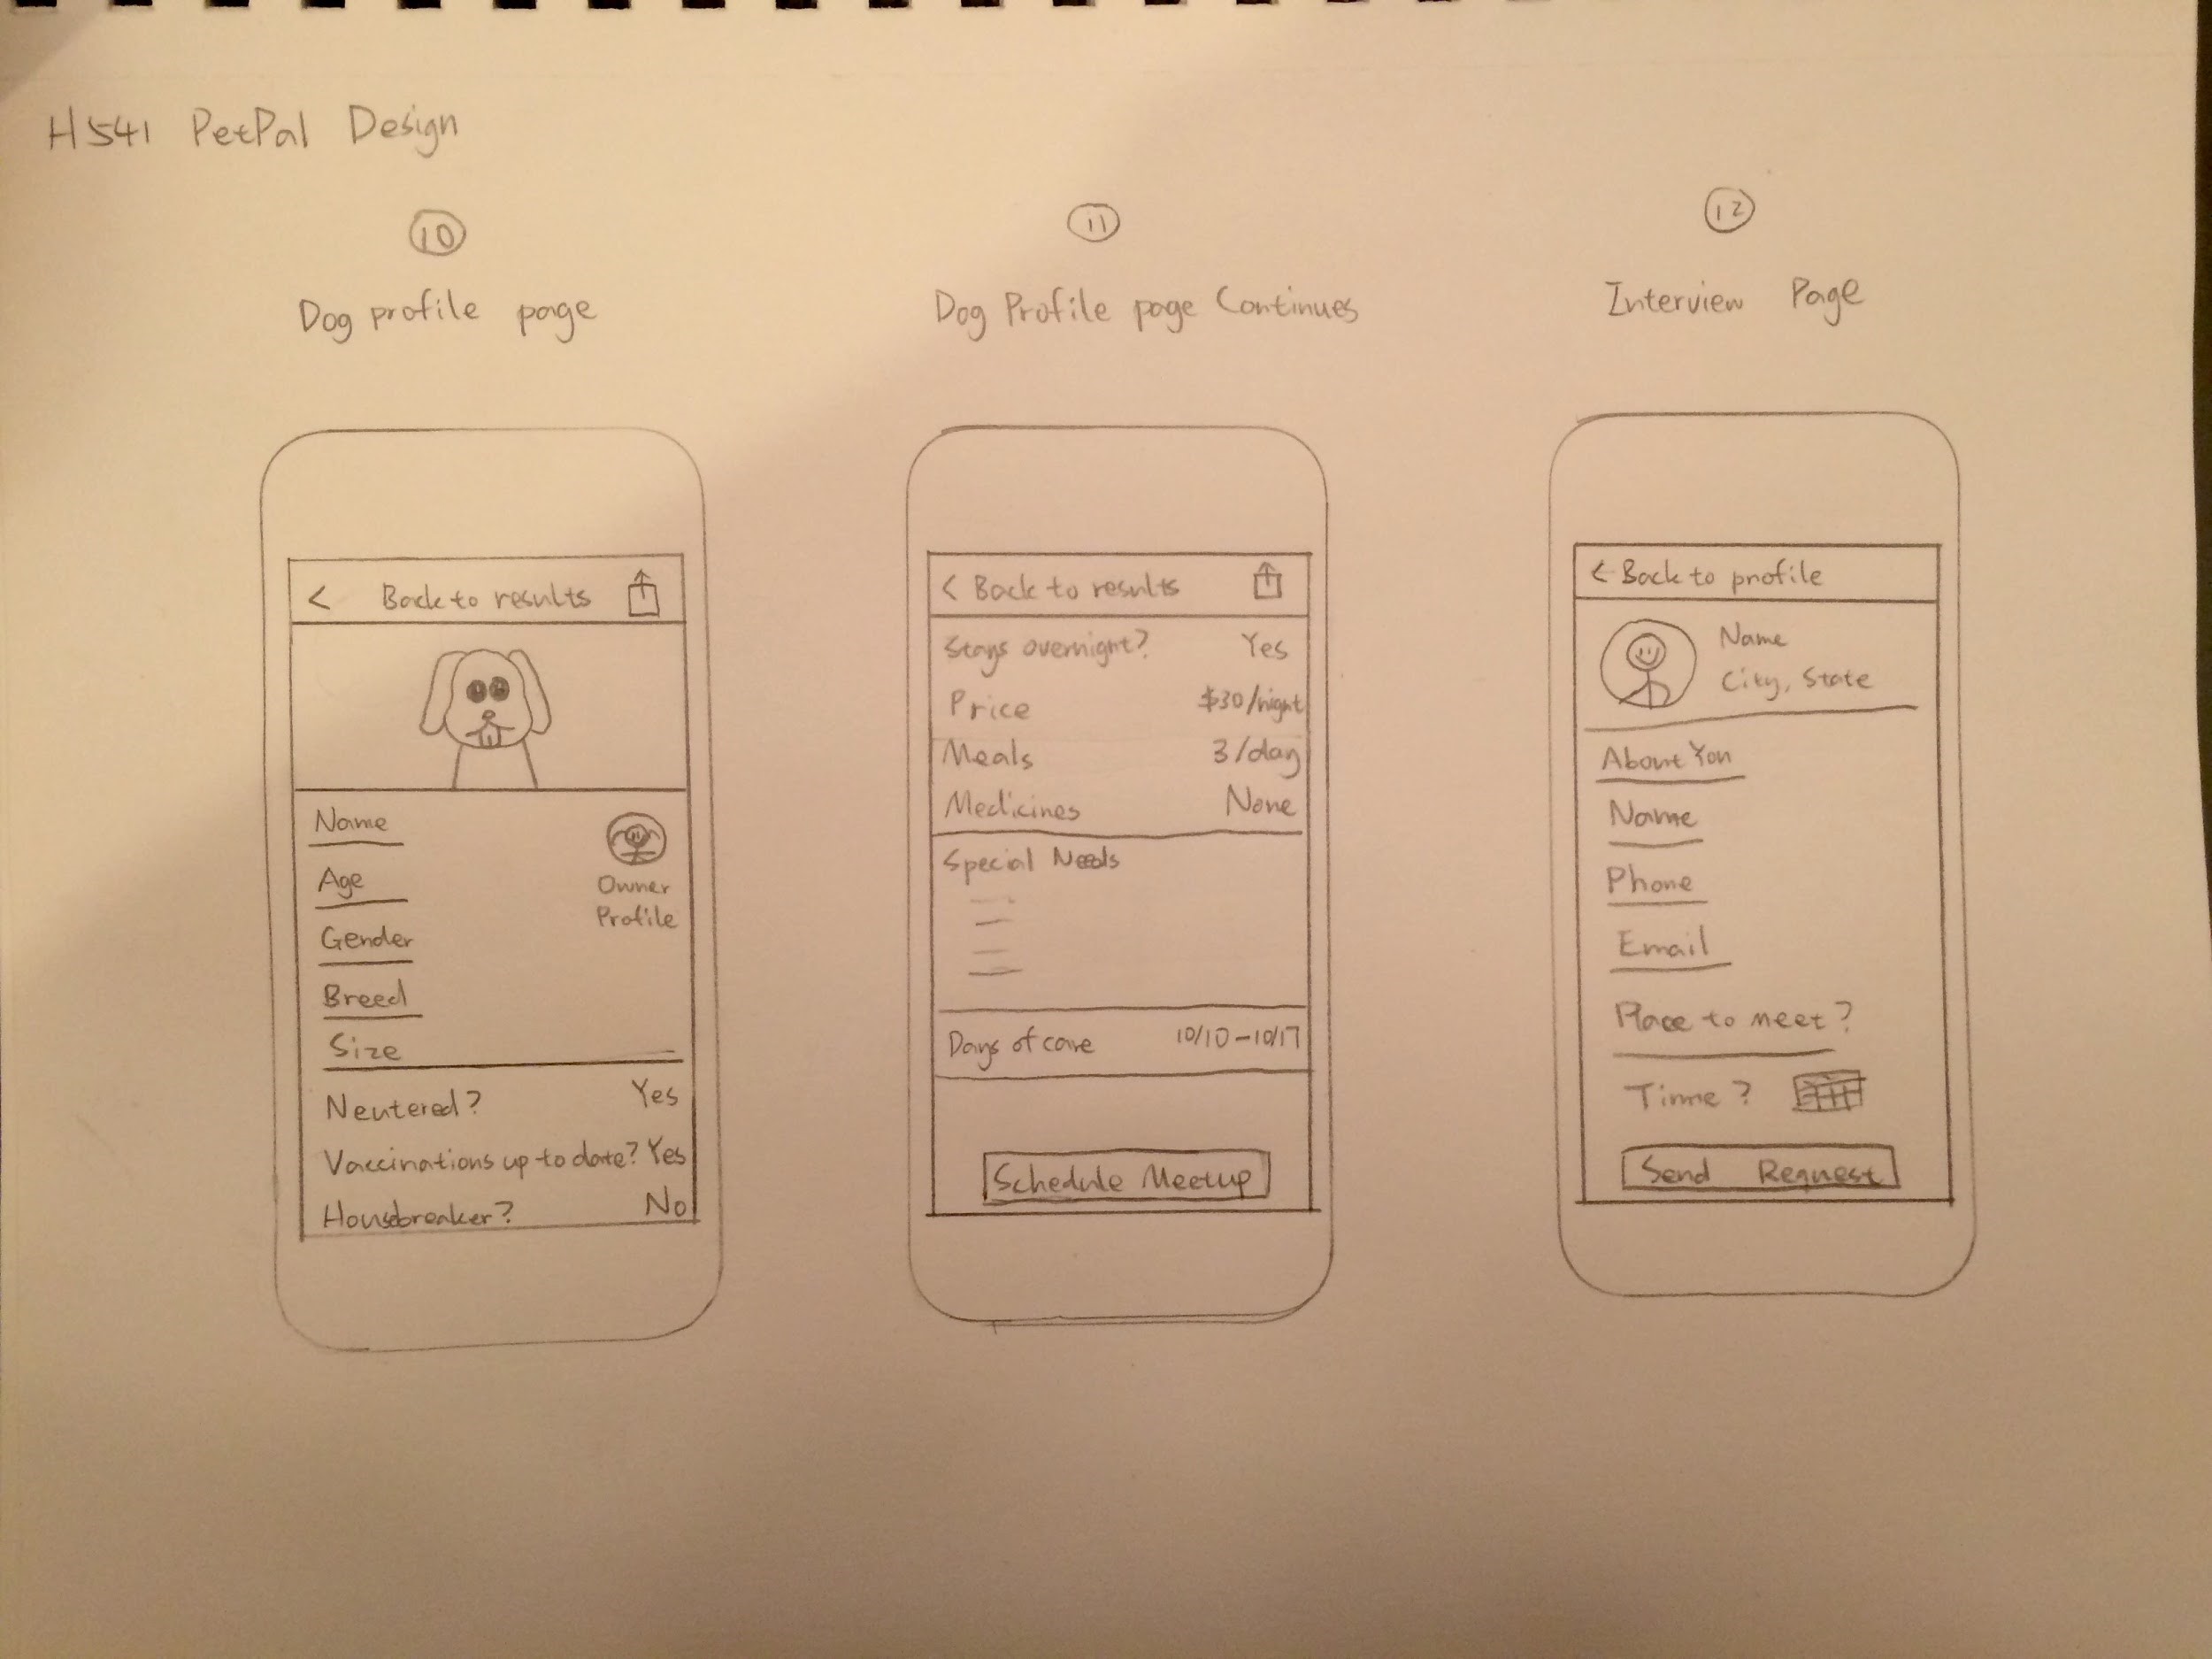 H541 PetPal Design
10
Dog profile page
< Back to results
Name
Owner
Profile
Age
Gender
Breed
Size
Neutered? Yes
Vaccinations up to date? Yes
Housebreaker? No
11
Dog Profile page Continues
< Back to results
Stays overnight? Yes
Price $30/night
Meals 3/day
Medicines None
Special Needs
Days of care 10/10-10/17
Schedule Meetup
12
Interview Page
< Back to profile
Name
City, State
About You
Name
Phone
Email
Place to meet?
Time?
Send Request